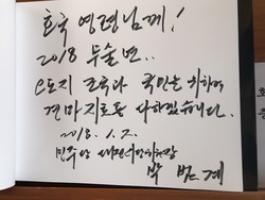 호국 영령님께!
2018 무술년..
오로지 조국과 국민을 위하여
견마지로를 다하겠습니다.
2018. 1. 2.
민주당 대전시당위원장
박 범 계